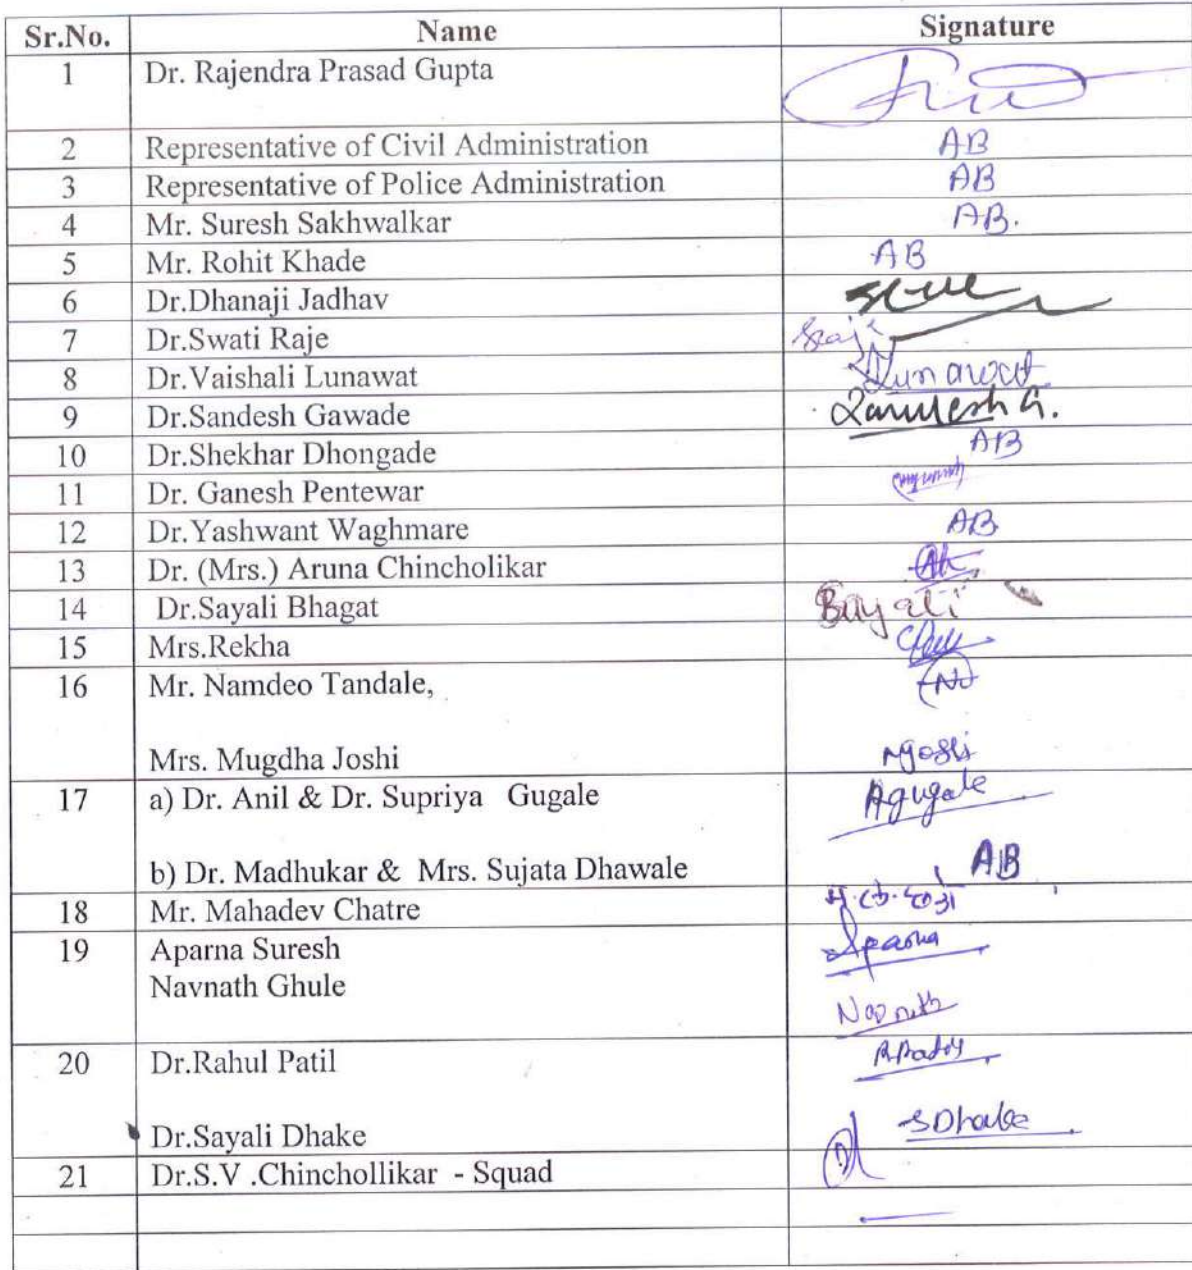 Sr.No. Name Signature
1 Dr. Rajendra Prasad Gupta
2 Representative of Civil Administration AB
3 Representative of Police Administration AB
4 Mr. Suresh Sakhwalkar AB.
5 Mr. Rohit Khade AB
6 Dr.Dhanaji Jadhav
7 Dr.Swati Raje
8 Dr.Vaishali Lunawat Lunawat
9 Dr.Sandesh Gawade
10 Dr.Shekhar Dhongade AB
11 Dr. Ganesh Pentewar
12 Dr.Yashwant Waghmare AB
13 Dr. (Mrs.) Aruna Chincholikar
14 Dr.Sayali Bhagat
15 Mrs.Rekha
16 Mr. Namdeo Tandale,
Mrs. Mugdha Joshi MJoshi
17 a) Dr. Anil & Dr. Supriya Gugale Agugale
b) Dr. Madhukar & Mrs. Sujata Dhawale AB
18 Mr. Mahadev Chatre
19 Aparna Suresh Aparna
Navnath Ghule
20 Dr.Rahul Patil
Dr.Sayali Dhake SDhake
21 Dr.S.V .Chinchollikar - Squad